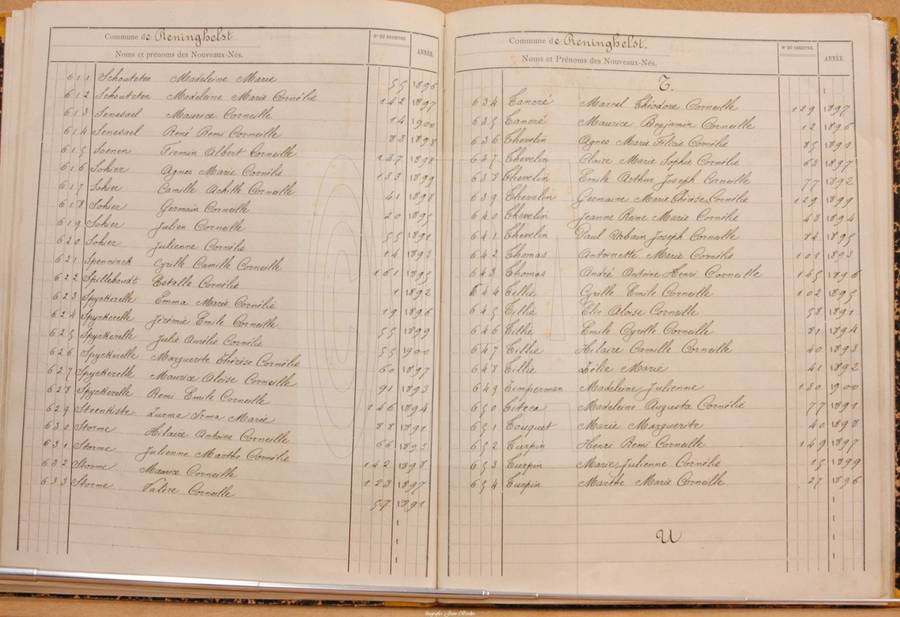 Commune de Reninghelst
Noms et prénoms des Nouveaux-Nés.
N° DU REGISTRE.
ANNÉE.
611 Schoutteten Madeleine Marie 55 1896
612 Schoutteten Madeleine Marie Cornélie 142 1897
613 Senesael Maurice Corneille 14 1900
614 Senesael René Remi Corneille 83 1898
615 Soenen Firmin Albert Corneille 127 1898
616 Sohier Agnes Marie Cornélie 133 1899
617 Sohier Camille Achille Corneille 41 1898
618 Sohier Germain Corneille 20 1895
619 Sohier Julien Corneille 55 1891
620 Sohier Julienne Cornélie 14 1893
621 Spenninck Cyrille Camille Corneille 161 1895
622 Spillebeudt Estelle Cornélie 1 1892
623 Spyckerelle Emma Marie Cornélie 19 1896
624 Spyckerelle Jérémie Emile Corneille 55 1899
625 Spyckerelle Julie Amélie Cornélie 55 1900
626 Spyckerelle Marguerite Thérèse Cornélie 60 1897
627 Spyckerelle Maurice Aloïse Corneille 91 1893
628 Spyckerelle Remi Emile Corneille 146 1894
629 Steenkiste Lucma Irma Marie 88 1891
630 Storme Hilaire Antoine Corneille 66 1893
631 Storme Julienne Marthe Cornélie 142 1898
632 Storme Maurice Corneille 123 1897
633 Storme Valère Corneille 57 1891
Commune de Reninghelst.
Noms et Prénoms des Nouveaux-Nés.
N° DU REGISTRE.
ANNÉE.
T.
634 Tancré Marcel Théodore Corneille 129 1897
635 Tancré Maurice Benjamin Corneille 12 1896
636 Thevelin Agnes Marie Félicie Cornélie 85 1891
637 Thevelin Claire Marie Sophie Cornélie 63 1897
638 Thevelin Emile Arthur Joseph Corneille 77 1892
639 Thevelin Germaine Marie Thérèse Cornélie 129 1899
640 Thevelin Jeanne Reine Marie Cornélie 43 1894
641 Thevelin Paul Urbain Joseph Corneille 84 1895
642 Thomas Antoinette Marie Cornélie 103 1893
643 Thomas André Antoine Henri Corneille 145 1896
644 Tillie Cyrille Emile Corneille 102 1895
645 Tillie Elie Aloïse Corneille 58 1891
646 Tillie Emile Cyrille Corneille 81 1894
647 Tillie Hilaire Camille Corneille 40 1893
648 Tillie Zélie Marie 41 1892
649 Timperman Madeleine Julienne 130 1900
650 Titeca Madeleine Augusta Cornélie 77 1891
651 Touquet Marie Marguerite 40 1898
652 Turpin Henri Remi Corneille 149 1897
653 Turpin Marie Julienne Cornélie 15 1899
654 Turpin Marthe Marie Corneille 27 1896
U